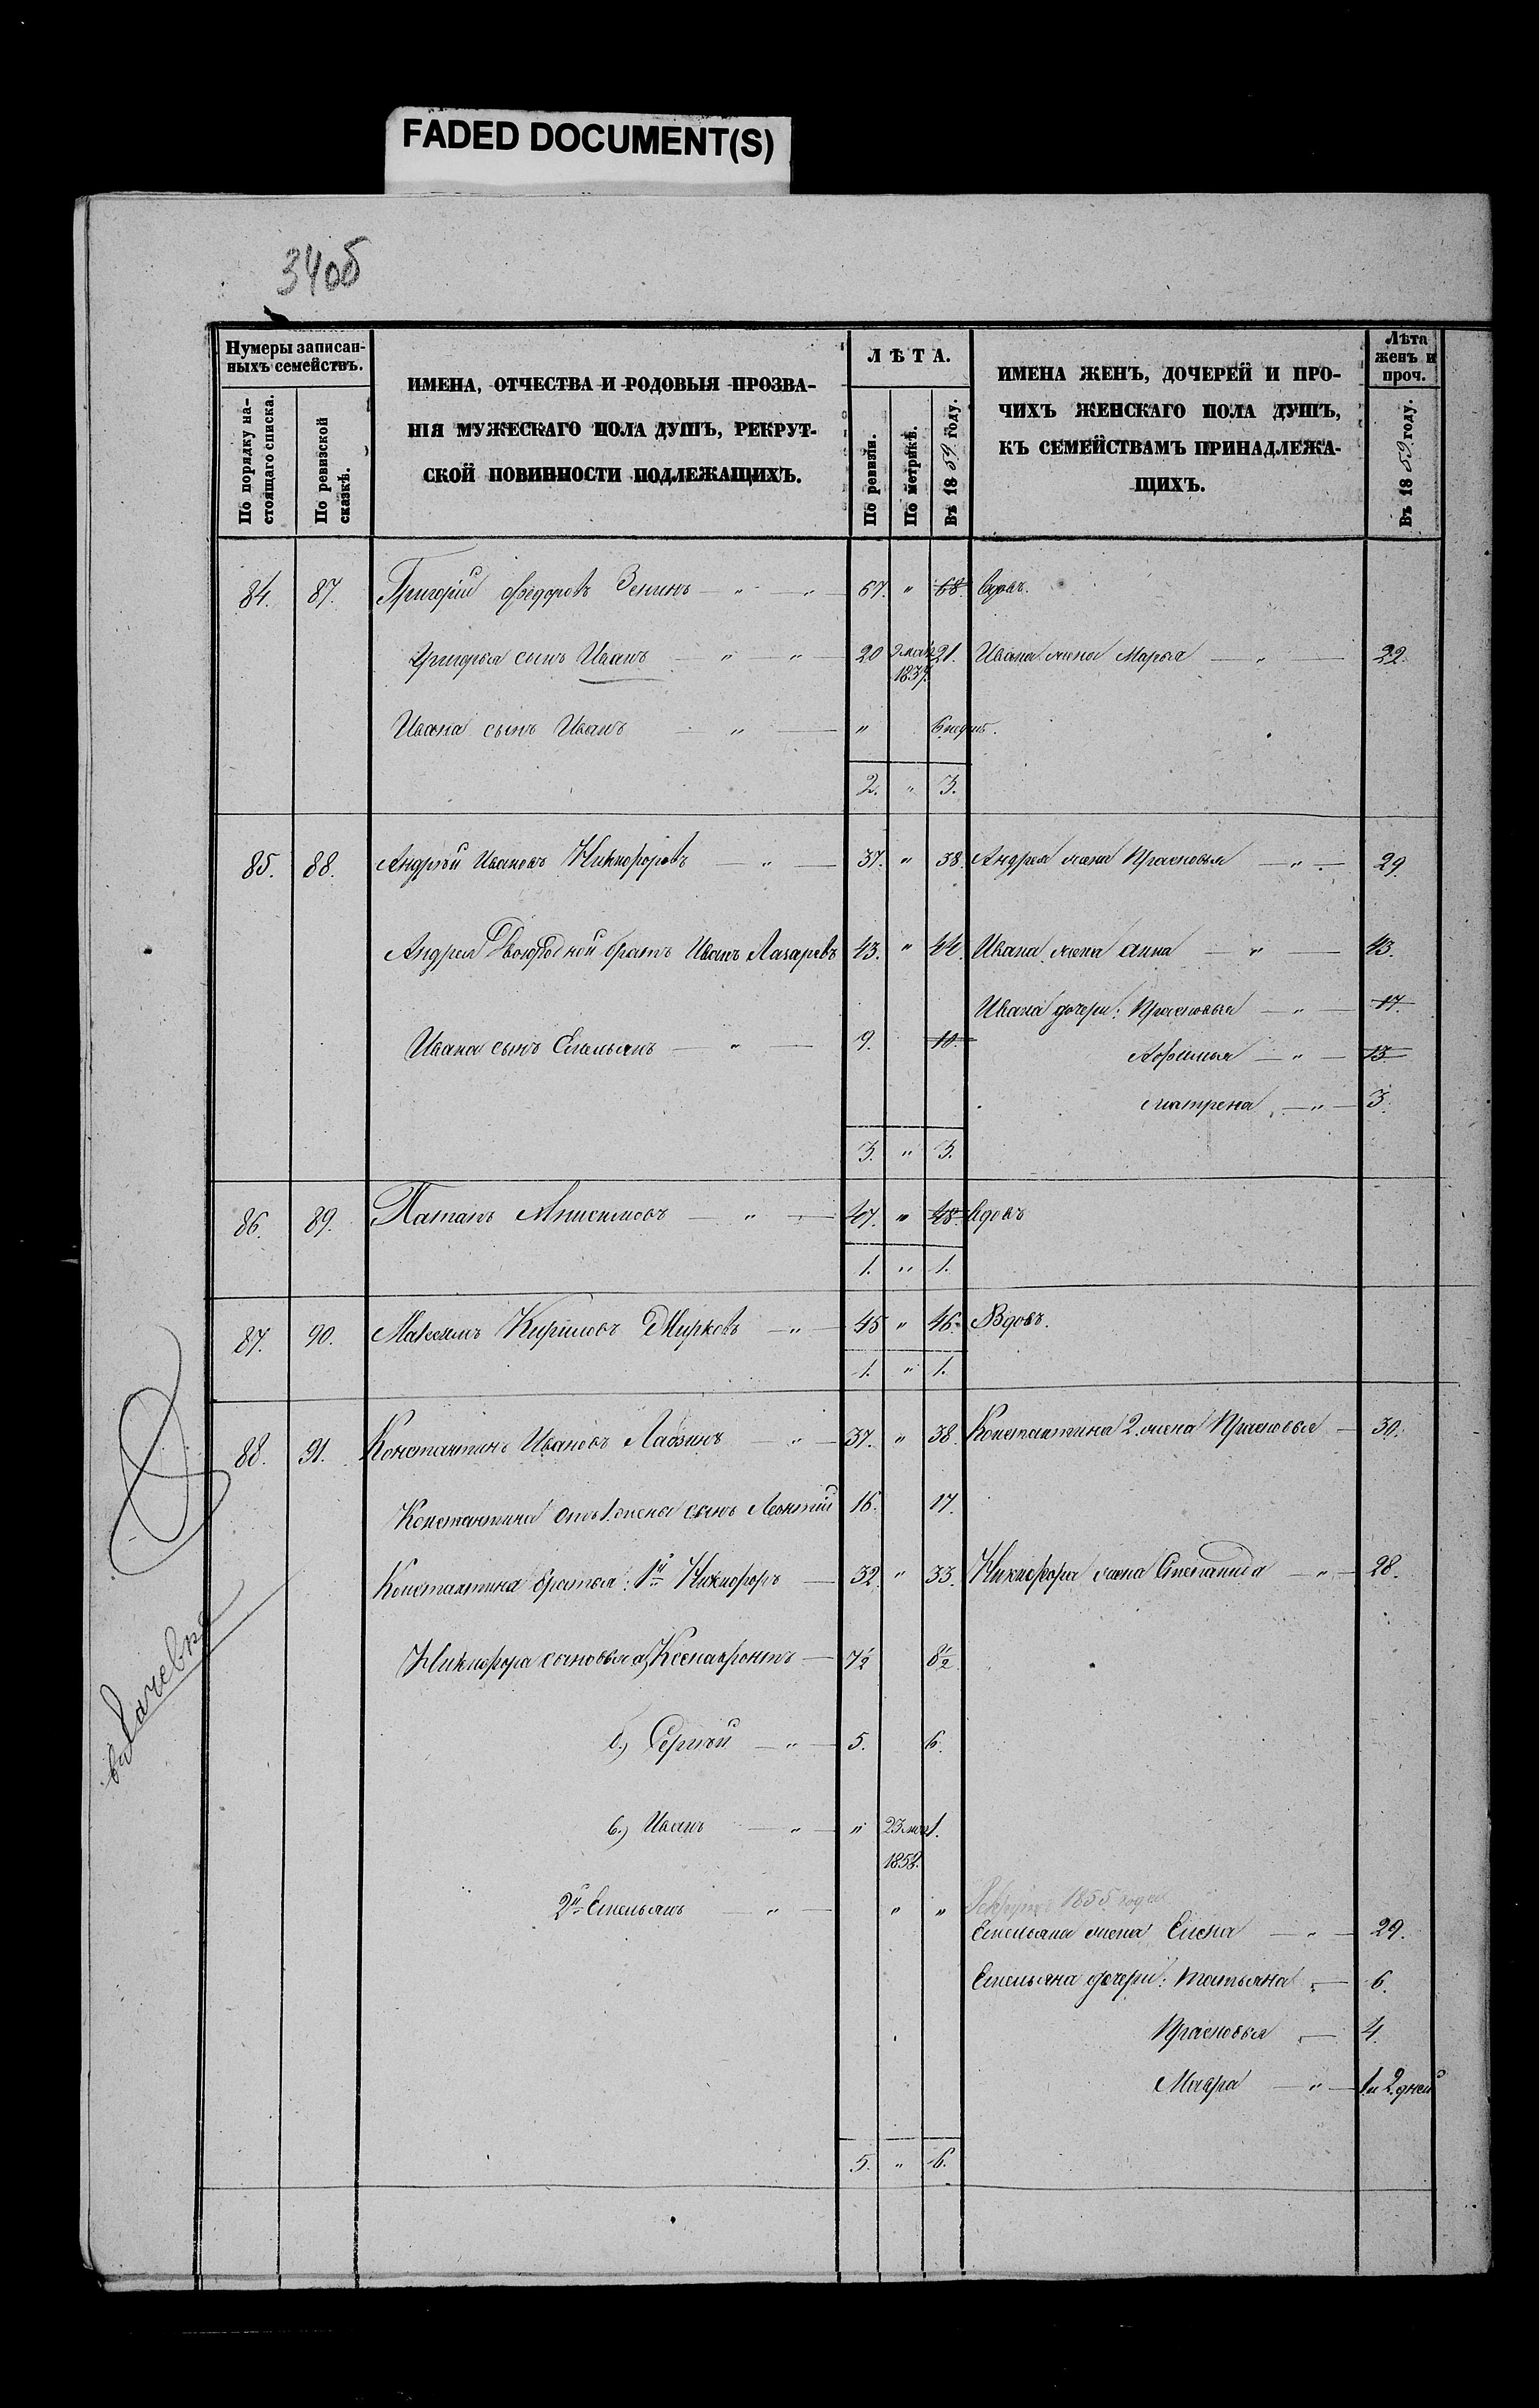 FADED DOCUMENT(S)
34об
Нумеры записан-
ныхъ семействъ.
По порядку на-
стоящаго списка.
По ревизской
сказкѣ.
ИМЕНА, ОТЧЕСТВА И РОДОВЫЯ ПРОЗВА-
НІЯ МУЖЕСКАГО ПОЛА ДУШЪ, РЕКРУТ-
СКОЙ ПОВИННОСТИ ПОДЛЕЖАЩИХЪ.
ЛѢТА.
По ревизіи.
По метрикѣ.
Въ 1859 году.
ИМЕНА ЖЕНЪ, ДОЧЕРЕЙ И ПРО-
ЧИХЪ ЖЕНСКАГО ПОЛА ДУШЪ,
КЪ СЕМЕЙСТВАМЪ ПРИНАДЛЕЖА-
ЩИХЪ.
Лѣта
женъ и
проч.
Въ 1859 году.
84. 87. Григорій Федоровъ Зенинъ — " — " — 67. " 68. Вдовъ.
Григорья сынъ Иванъ — " — " — 20 21. Ивана жена Марья — " — 22.
1837.
Ивана сынъ Иванъ — " — "
2. " 3.
85. 88. Андрей Ивановъ Никифоровъ — " — 37. " 38. Андрея жена Прасковья — " — 29.
Андрея Двоюродной братъ Иванъ Лазаревъ 43. " 44. Ивана жена Анна — " — 43.
Ивана дочери: Прасковья — " — 17.
Ивана сынъ Емельянъ — " — 9. 10.
Афимья — " — 13.
Матрена — " — 3.
3. " 3.
86. 89. Патапъ Анисимовъ — " — 47. " 48. Вдовъ
1. " 1.
87. 90. Максимъ Кириловъ — " — 45 " 46. Вдовъ.
1. " 1.
88. 91. Константинъ Ивановъ — " — 37. " 38. Константина 2. жена Прасковья — 30.
Константина отъ 1. жены сынъ Леонтій 16. 17.
Константина братья: 1й Никифоръ — 32. " 33. Никифора жена Степанида — " — 28.
Никифора сыновья а) Ксенафонтъ — 7½ 8½
б.) Сергѣй — " — 5. 6.
в.) Иванъ — " — " 23 1.
1858.
2й Емельянъ — " — " " Рекрутъ 1855 года
Емельяна жена Елена — " — 29.
Емельяна дочери: Татьяна " — 6.
Прасковья " — 4.
Мавра — " — 1 и 2. дней
5. " 6.